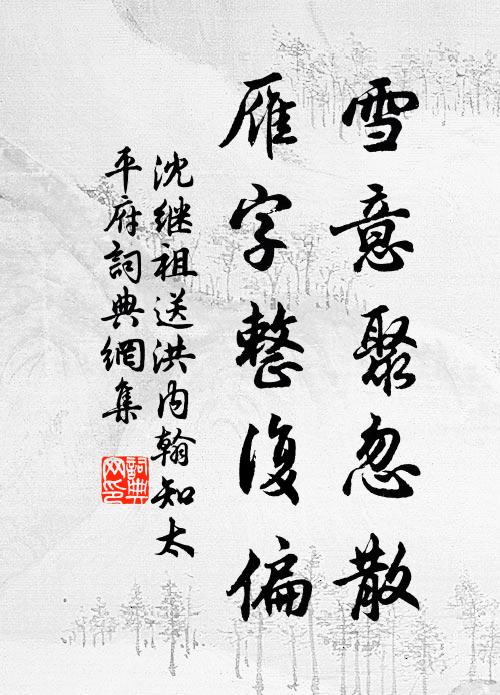 雪意聚忽散
雁字整復偏
沈继祖送洪内翰知太
平府詞典網集
詞典
网印